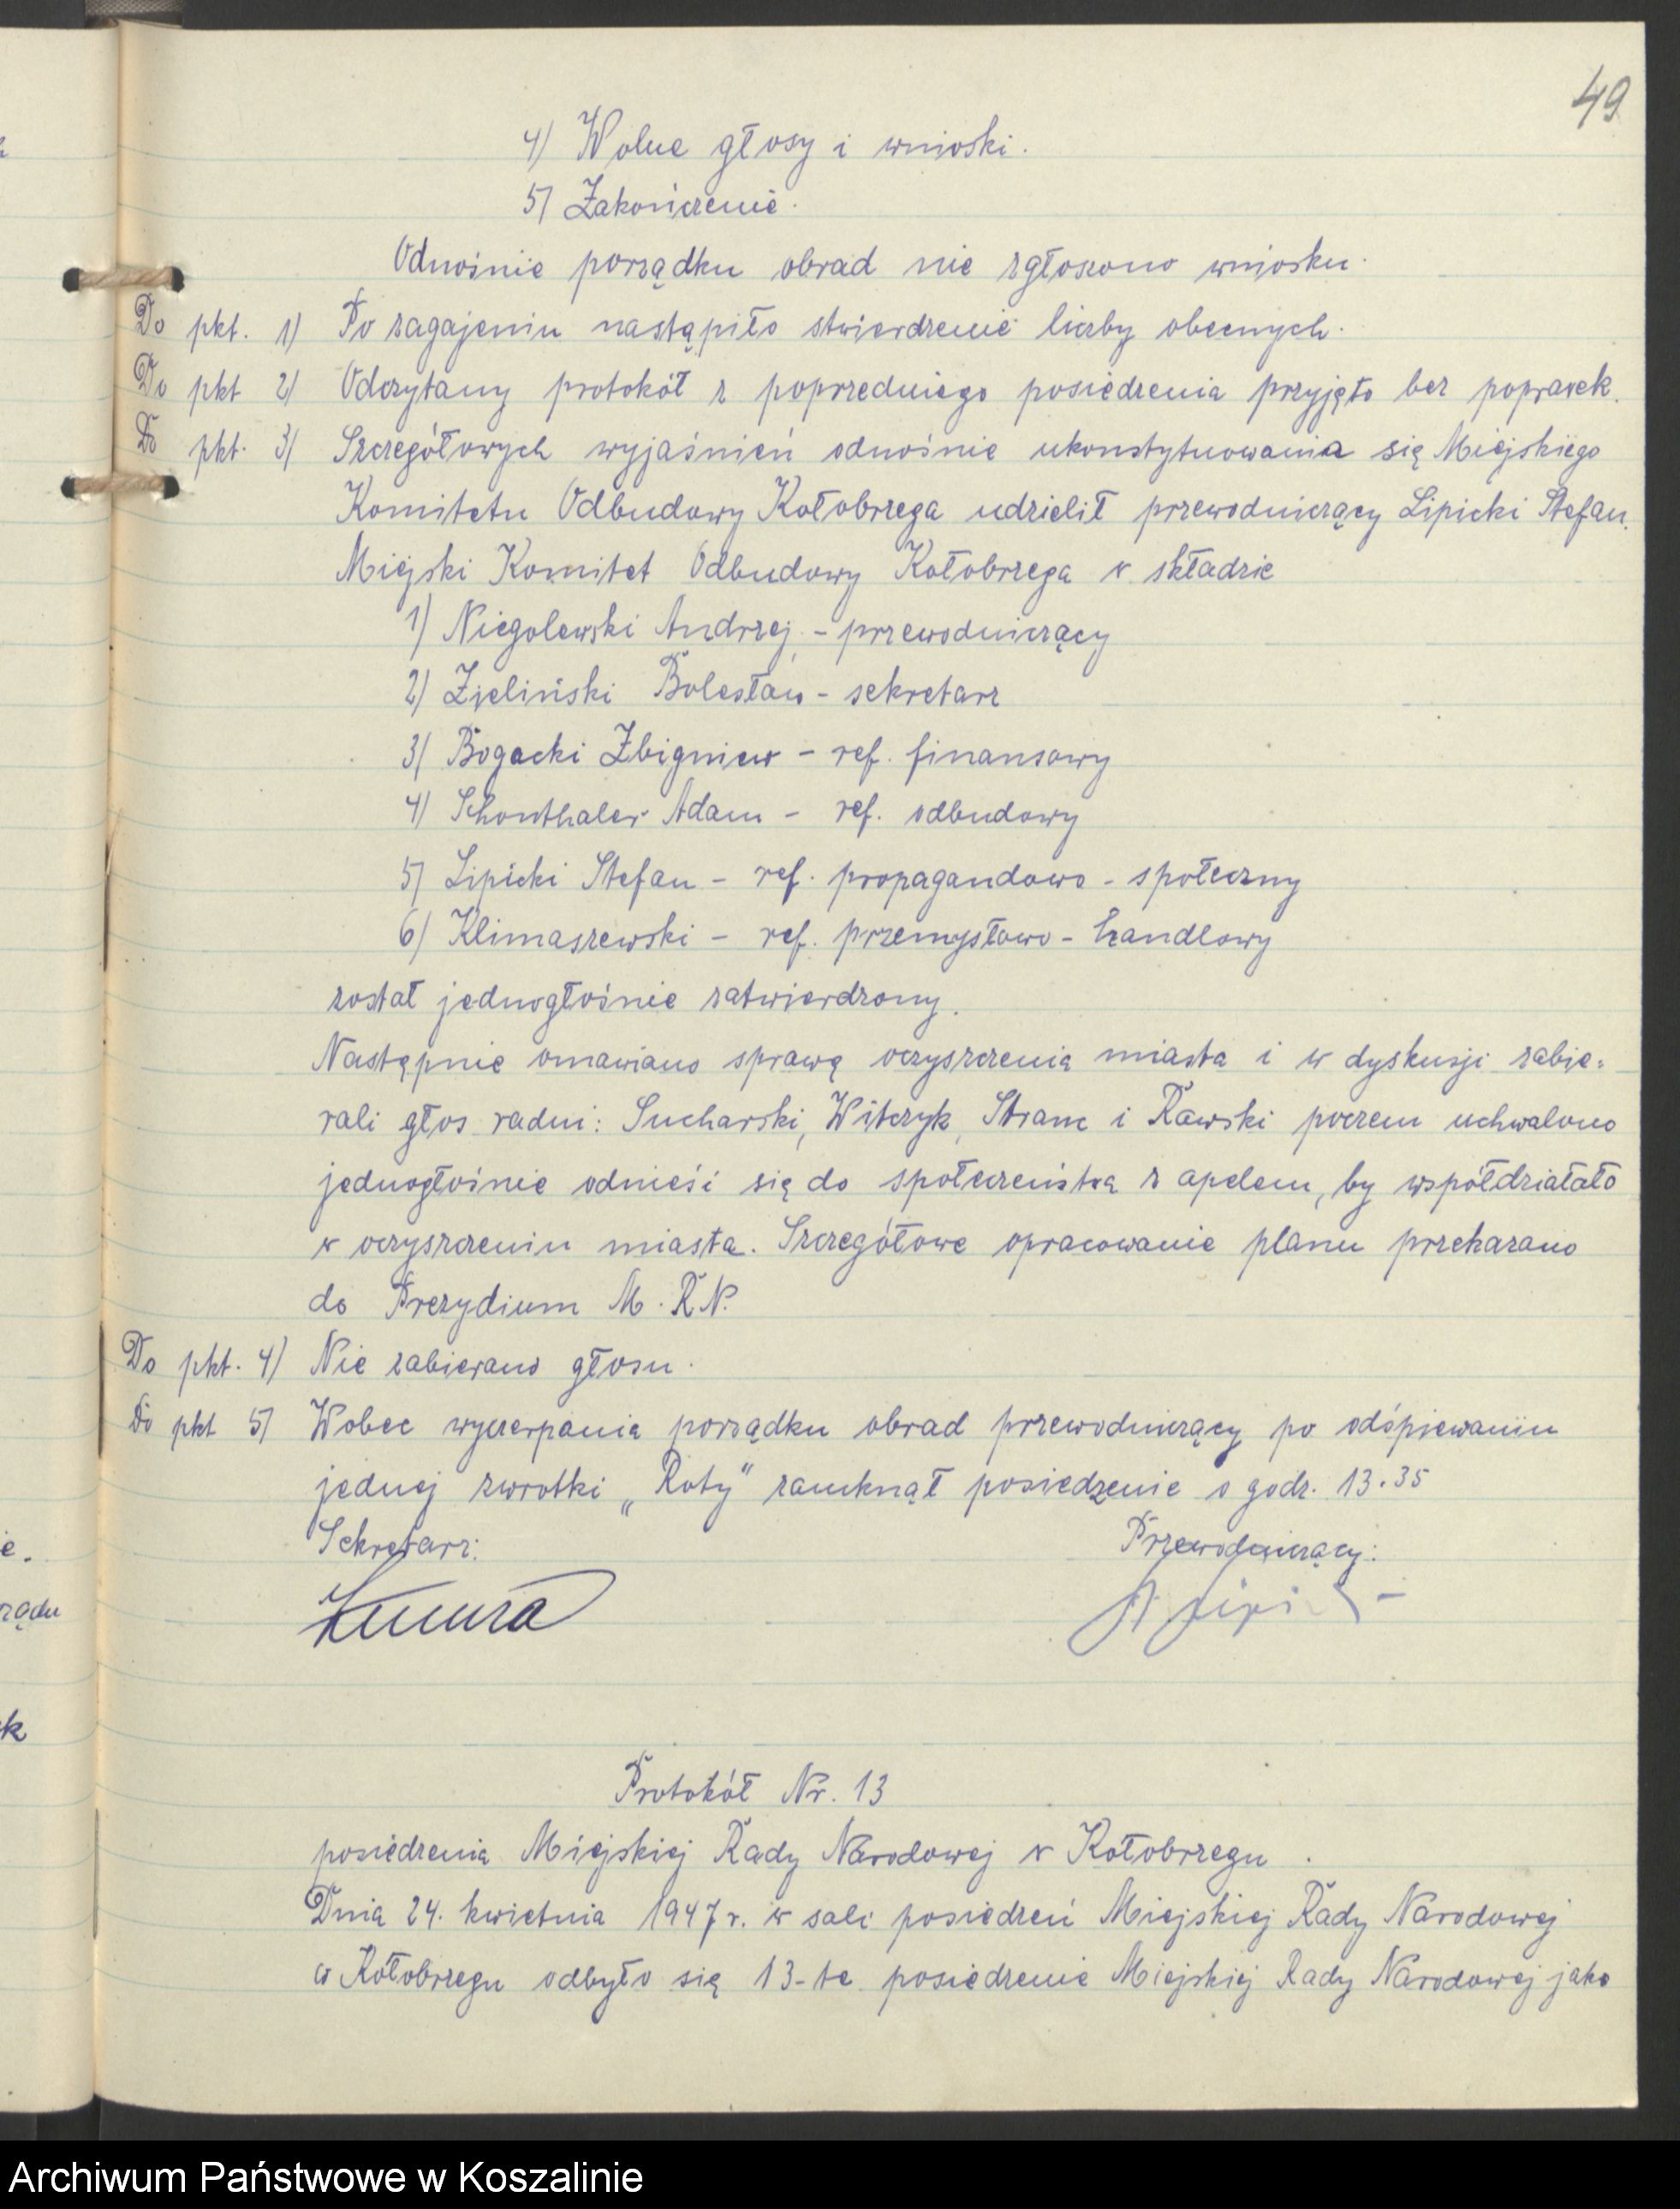 49
4) Wolne głosy i wnioski.
5) Zakończenie.
Odnośnie porządku obrad nie zgłoszono wniosku.
Do pkt. 1) Po zagajeniu nastąpiło stwierdzenie liczby obecnych.
Do pkt 2) Odczytany protokół z poprzedniego posiedzenia przyjęto bez poprawek.
Do pkt. 3) Szczegółowych wyjaśnień odnośnie ukonstytuowania się Miejskiego
Komitetu Odbudowy Kołobrzega udzielił przewodniczący Lipicki Stefan.
Miejski Komitet Odbudowy Kołobrzega w składzie
1) Niegolewski Andrzej - przewodniczący
2) Zieliński Bolesław - sekretarz
3) Bogacki Zbigniew - ref. finansowy
4) Schonthaler Adam - ref. odbudowy
5) Lipicki Stefan - ref. propagandowo - społeczny
6) Klimaszewski - ref. przemysłowo - handlowy
został jednogłośnie zatwierdzony.
Następnie omawiano sprawę oczyszczenia miasta i w dyskusji zabie=
rali głos radni: Sucharski, Witczyk, Stranc i Rawski poczem uchwalono
jednogłośnie odnieść się do społeczeństwa z apelem, by współdziałało
w oczyszczeniu miasta. Szczegółowe opracowanie planu przekazano
do Prezydium M.R.N.
Do pkt. 4) Nie zabierano głosu.
Do pkt 5) Wobec wyczerpania porządku obrad przewodniczący po odśpiewaniu
jednej zwrotki „Roty" zamknął posiedzenie o godz. 13.35
Sekretarz: Przewodniczący:
Protokół Nr. 13
posiedzenia Miejskiej Rady Narodowej w Kołobrzegu.
Dnia 24. kwietnia 1947 r. w sali posiedzeń Miejskiej Rady Narodowej
w Kołobrzegu odbyło się 13-te posiedzenie Miejskiej Rady Narodowej jako
Archiwum Państwowe w Koszalinie